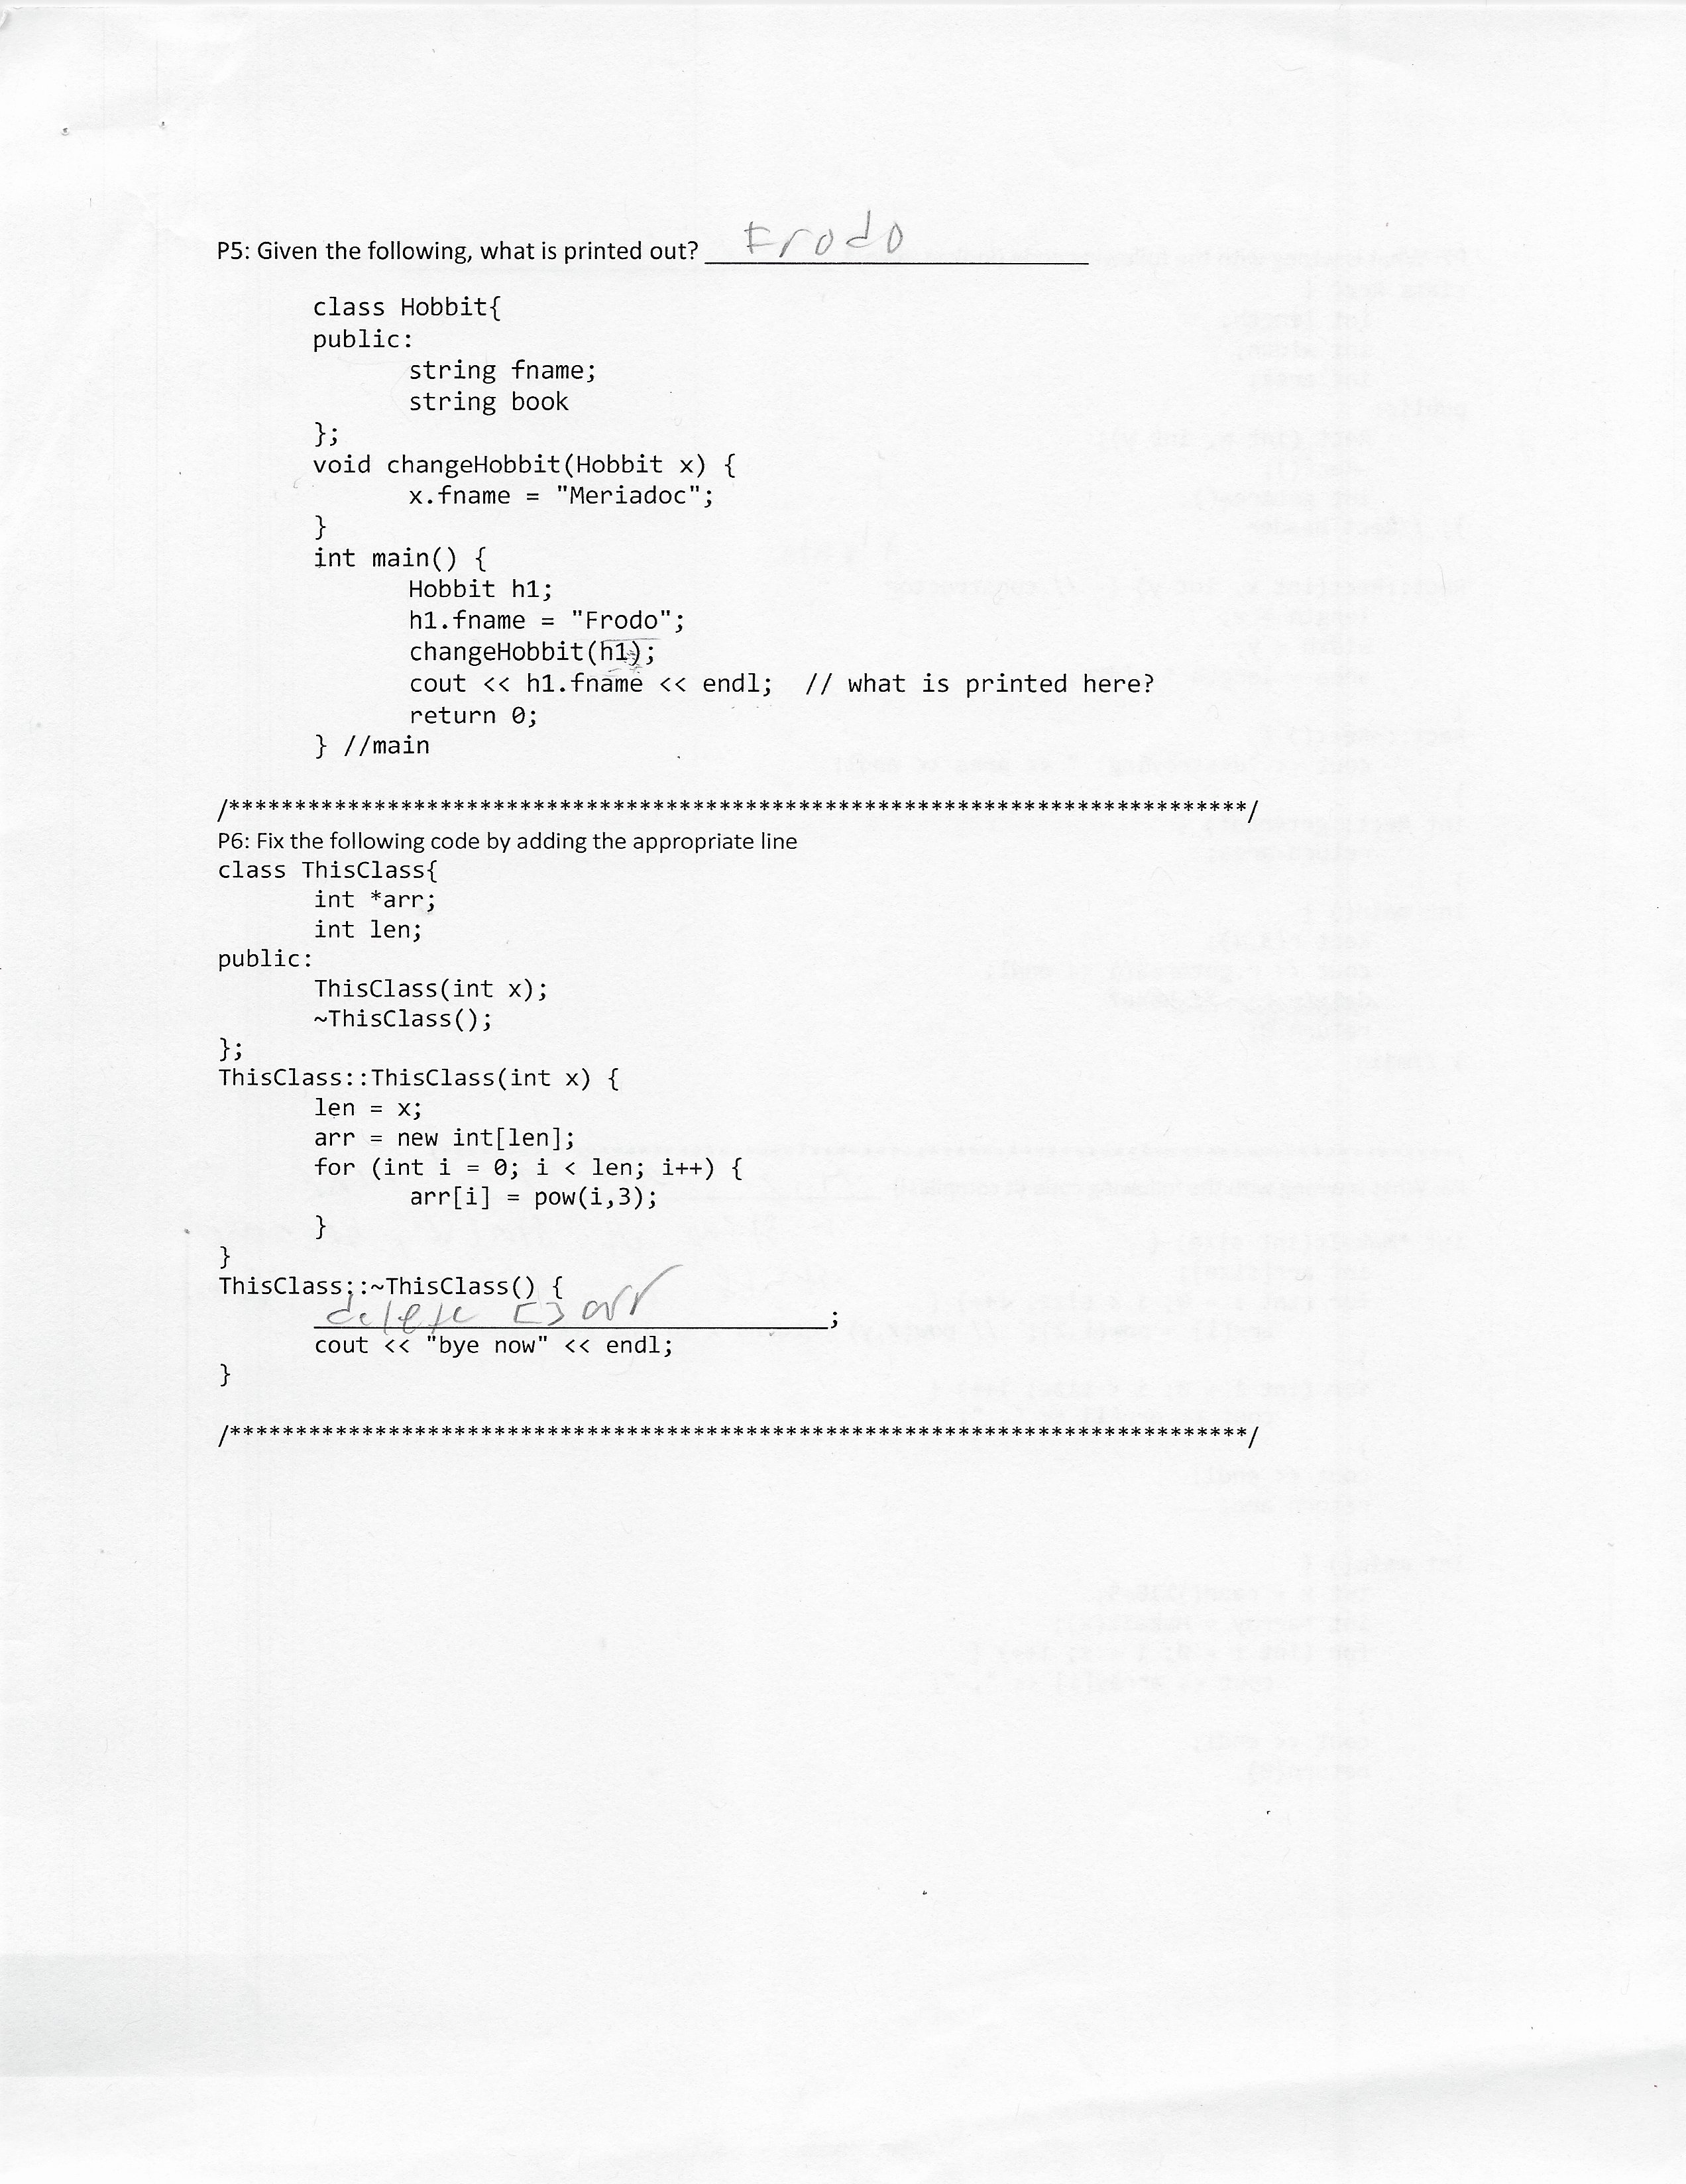 P5: Given the following, what is printed out? Frodo
class Hobbit{
public:
string fname;
string book
};
void changeHobbit(Hobbit x) {
x.fname = "Meriadoc";
}
int main() {
Hobbit h1;
h1.fname = "Frodo";
changeHobbit(h1);
cout << h1.fname << endl; // what is printed here?
return 0;
} //main
/******************************************************************************/
P6: Fix the following code by adding the appropriate line
class ThisClass{
int *arr;
int len;
public:
ThisClass(int x);
~ThisClass();
};
ThisClass::ThisClass(int x) {
len = x;
arr = new int[len];
for (int i = 0; i < len; i++) {
arr[i] = pow(i,3);
}
}
ThisClass::~ThisClass() {
delete [] arr;
cout << "bye now" << endl;
}
/******************************************************************************/